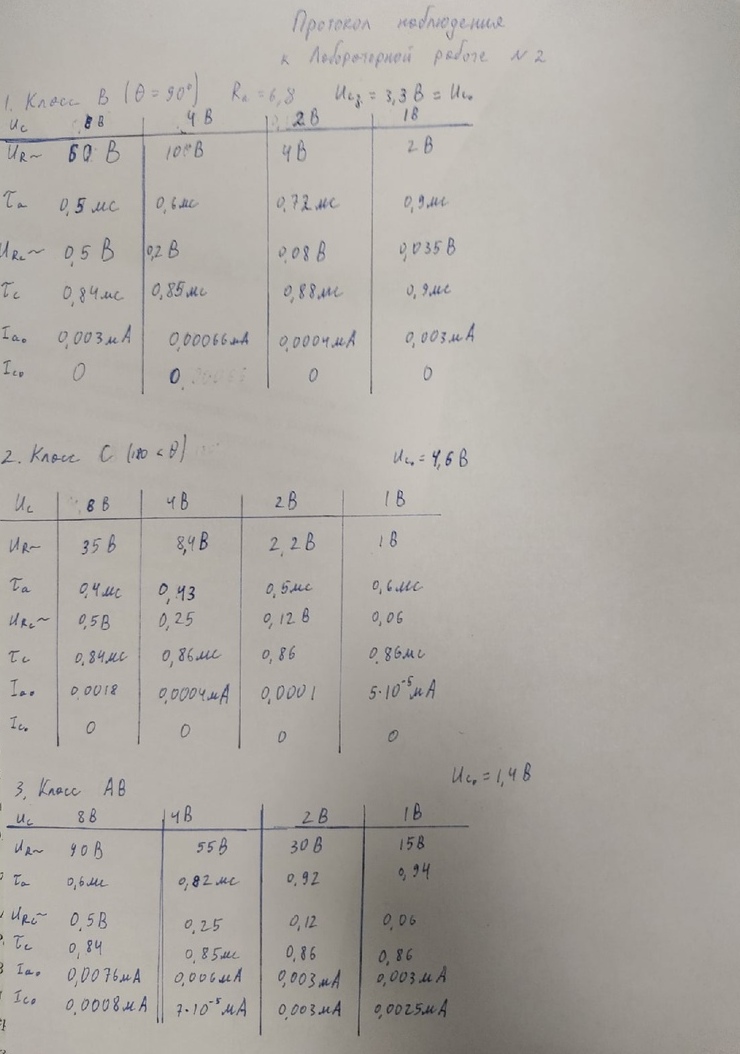 Протокол наблюдения
к Лабораторной работе N 2
1. Класс В (θ = 90°) Rа = 6,8 Uсз = 3,3 В = Uс₀
Uс 8 В 4 В 2 В 1В
UR~ 60 В 10 В 4В 2 В
τа 0,5 мс 0,6мс 0,72 мс 0,9мс
URс~ 0,5 В 0,2 В 0,08 В 0,035 В
τс 0,84мс 0,85мс 0,88мс 0,9мс
Iа₀ 0,003мА 0,00066мА 0,0004мА 0,003мА
Iс₀ 0 0 0 0
2. Класс С (180 < θ) Uс₀ = 4,6 В
Uс 8 В 4В 2В 1В
UR~ 35 В 8,4В 2,2В 1В
τа 0,4мс 0,43 0,5мс 0,6мс
URс~ 0,5В 0,25 0,12 В 0,06
τс 0,84мс 0,86мс 0,86 0,86мс
Iа₀ 0,0018 0,0004мА 0,0001 5·10⁻⁵мА
Iс₀ 0 0 0 0
3. Класс АВ Uс₀ = 1,4 В
Uс 8В 4В 2В 1В
UR~ 90В 55В 30В 15В
τа 0,6мс 0,82 мс 0,92 0,94
URс~ 0,5В 0,25 0,12 0,06
τс 0,84 0,85мс 0,86 0,86
Iа₀ 0,0076мА 0,006мА 0,003мА 0,003мА
Iс₀ 0,0008мА 7·10⁻⁵мА 0,003мА 0,0025мА